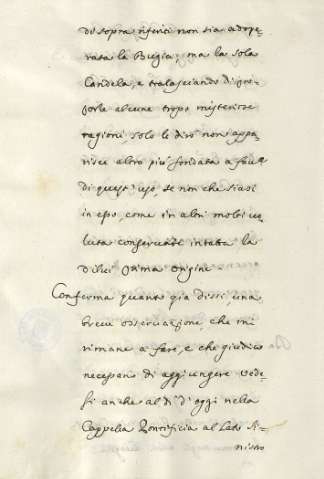 di sopra riferiti non sia adope-
rata la Bugia; ma la sola
Candela, e tralasciando di pro-
porle alcune troppo misteriose
ragioni, solo le dirò non appa-
risce altro più fondata a favore
di quest'uso, se non che siasi
in esso, come in altri mobi vo-
luta conservare intatta la
di lui prima origine.
Conferma quanto già dissi, una
breve osservazione, che mi
rimane a fare, e che giudico
necessario di aggiungere. Vede-
si anche al dì d'oggi nella
Cappella Pontificia al Lato Si-
nistro